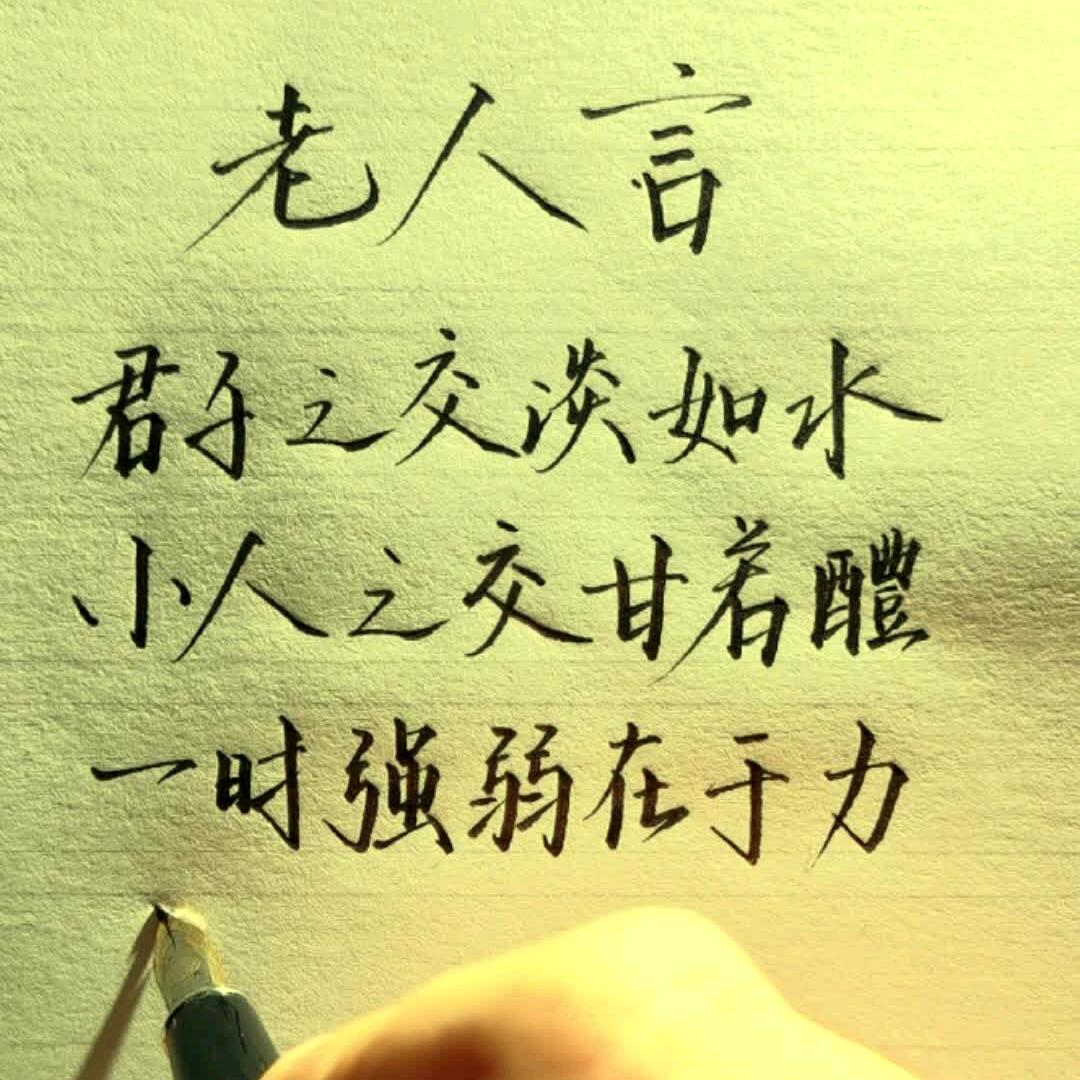 老人言
君子之交淡如水
小人之交甘若醴
一时强弱在于力